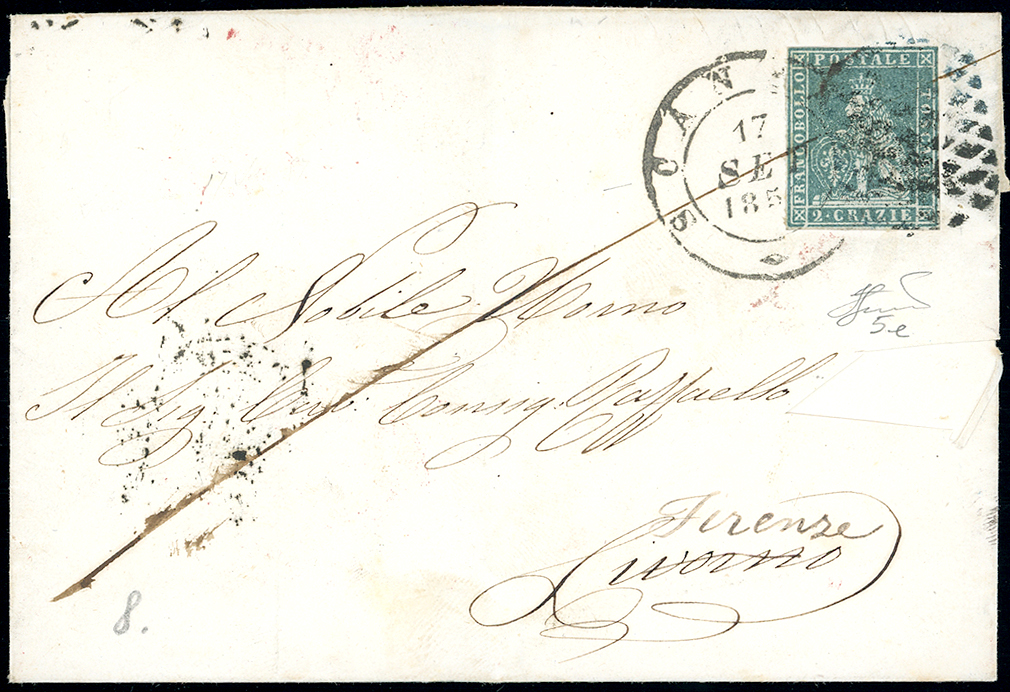 SCAN
17
SE
185
POSTALE
FRANCOBOLLO
2 · CRAZIE
Al Nobile Uomo
5e
Il Sig. Cav. Consig. Raffaello
Firenze
Livorno
8.